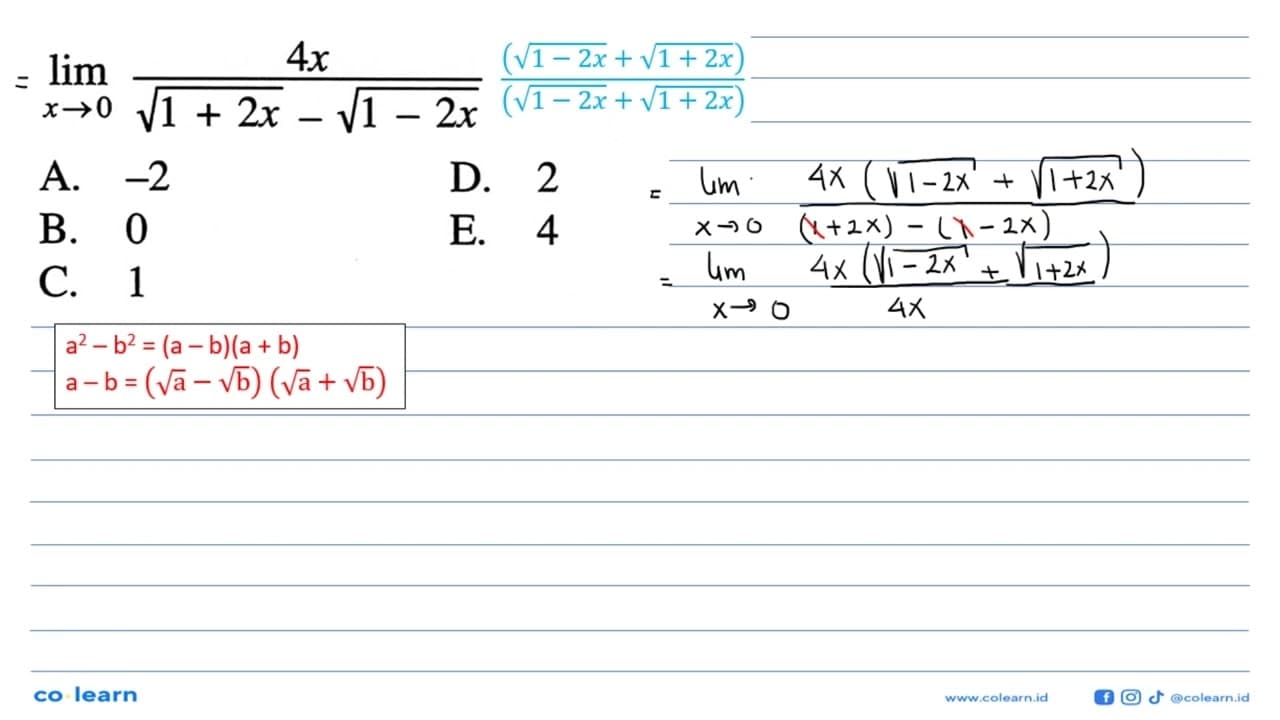 = lim x→0 4x / (√(1 + 2x) – √(1 – 2x)) (√(1 − 2x) + √(1 + 2x)) / (√(1 − 2x) + √(1 + 2x))
A. –2
B. 0
C. 1
D. 2
E. 4
= lim x→0 4x (√(1-2x) + √(1+2x)) / ((1+2x) - (1-2x))
= lim x→0 4x (√(1-2x) + √(1+2x)) / 4x
a² – b² = (a – b)(a + b)
a – b = (√a – √b) (√a + √b)
co learn
www.colearn.id
@colearn.id